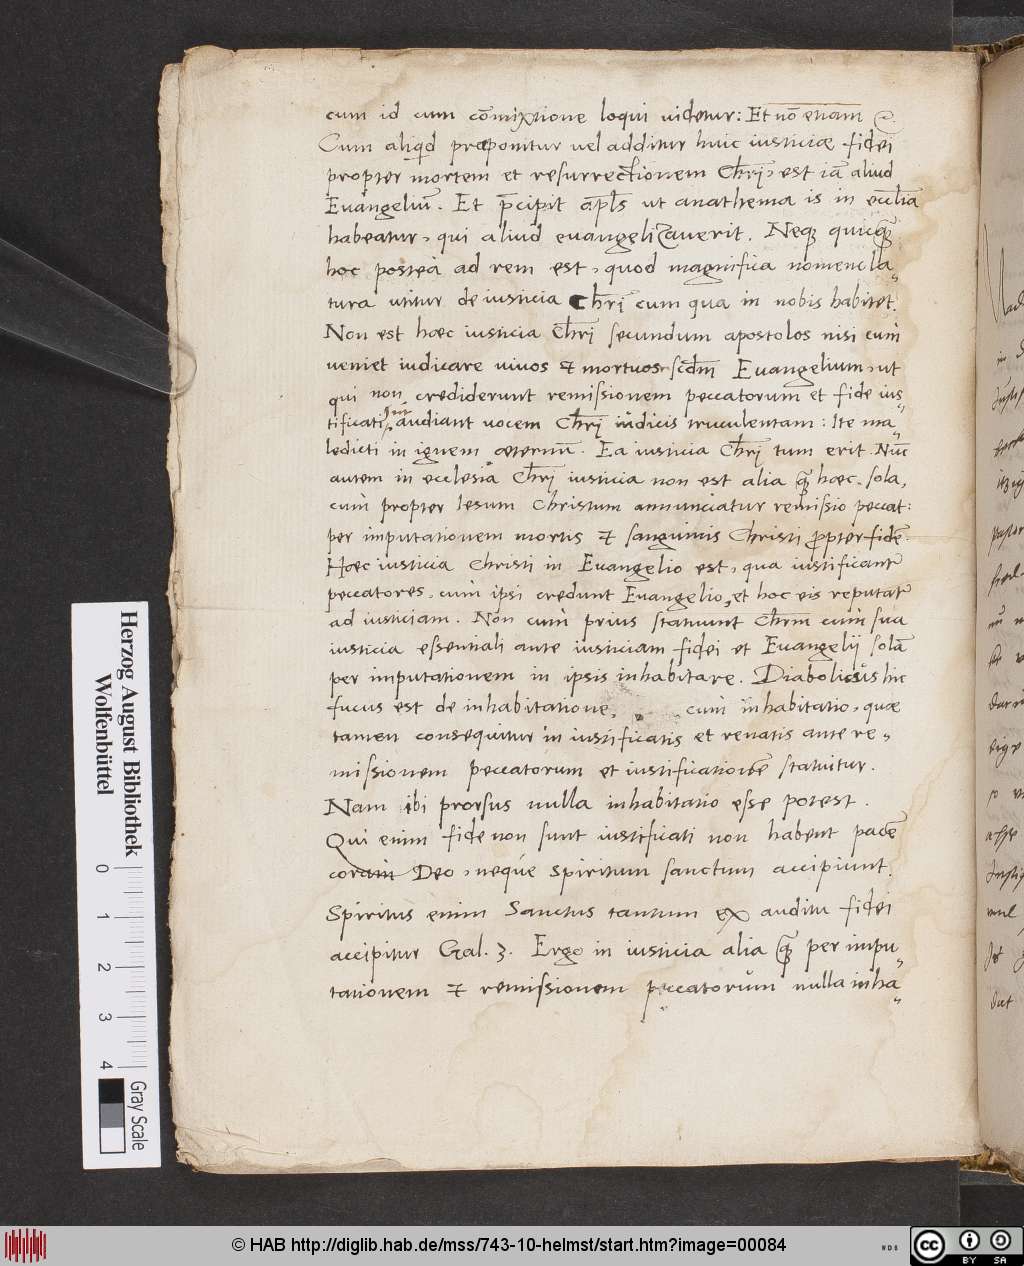 cum id cum cōmixtione loqui videtur: Et nō etiam &.
Cum aliqid præponitur vel additur huic iusticiæ fidei
propter mortem et resurrectionem Chrī, est iā aliud
Evangeliū. Et p̄cipit apl̄s ut anathema is in eccl̄ia
habeatur, qui aliud evangelizauerit. Neqꝫ quicꝗ̄
hoc posteà ad rem est, quod magnifica nomencla„
tura utitur de iusticia Chrī cum qua in nobis habitet.
Non est hæc iusticia Chrī secundum apostolos nisi cùm
veniet iudicare vivos & mortuos scd̄m Evangelium, ut
qui non crediderunt remissionem peccatorum et fide ius„
tificati sint, audiant vocem Chrī iudicis truculentam: Ite ma„
ledicti in ignem æternū. Ea iusticia Chrī tum erit. Nūc
autem in ecclesia Chrī iusticia non est alia ꝗ̄ hæc sola,
cùm propter Iesum Christum annunciatur remissio peccat:
per imputationem mortis & sanguinis Christi ꝓpter fidē.
Hæc iusticia Christi in Evangelio est, qua iustificantr̄
peccatores, cùm ipsi credunt Evangelio, et hoc eis reputatr̄
ad iusticiam. Non cùm prius statuunt Chrm̄ cùm sua
iusticia essentiali ante iusticiam fidei et Evangelij solā
per imputationem in ipsis inhabitare. Diabolicus hic
fucus est de inhabitatione, cùm inhabitatio, quæ
tamen consequitur in iustificatis et renatis ante re„
missionem peccatorum et iustificationē statuitur.
Nam ibi prorsus nulla inhabitatio esse potest.
Qui enim fide non sunt iustificati non habent pacē
coram Deo, neque Spiritum sanctum accipiunt.
Spiritus enim Sanctus tantum ex auditu fidei
accipitur Gal. 3. Ergo in iusticia alia ꝗ̄ per impu„
tationem & remissionem peccatorum nulla inha„
Herzog August Bibliothek
Wolfenbüttel
0 1 2 3 4
Gray Scale
© HAB http://diglib.hab.de/mss/743-10-helmst/start.htm?image=00084
cc BY SA